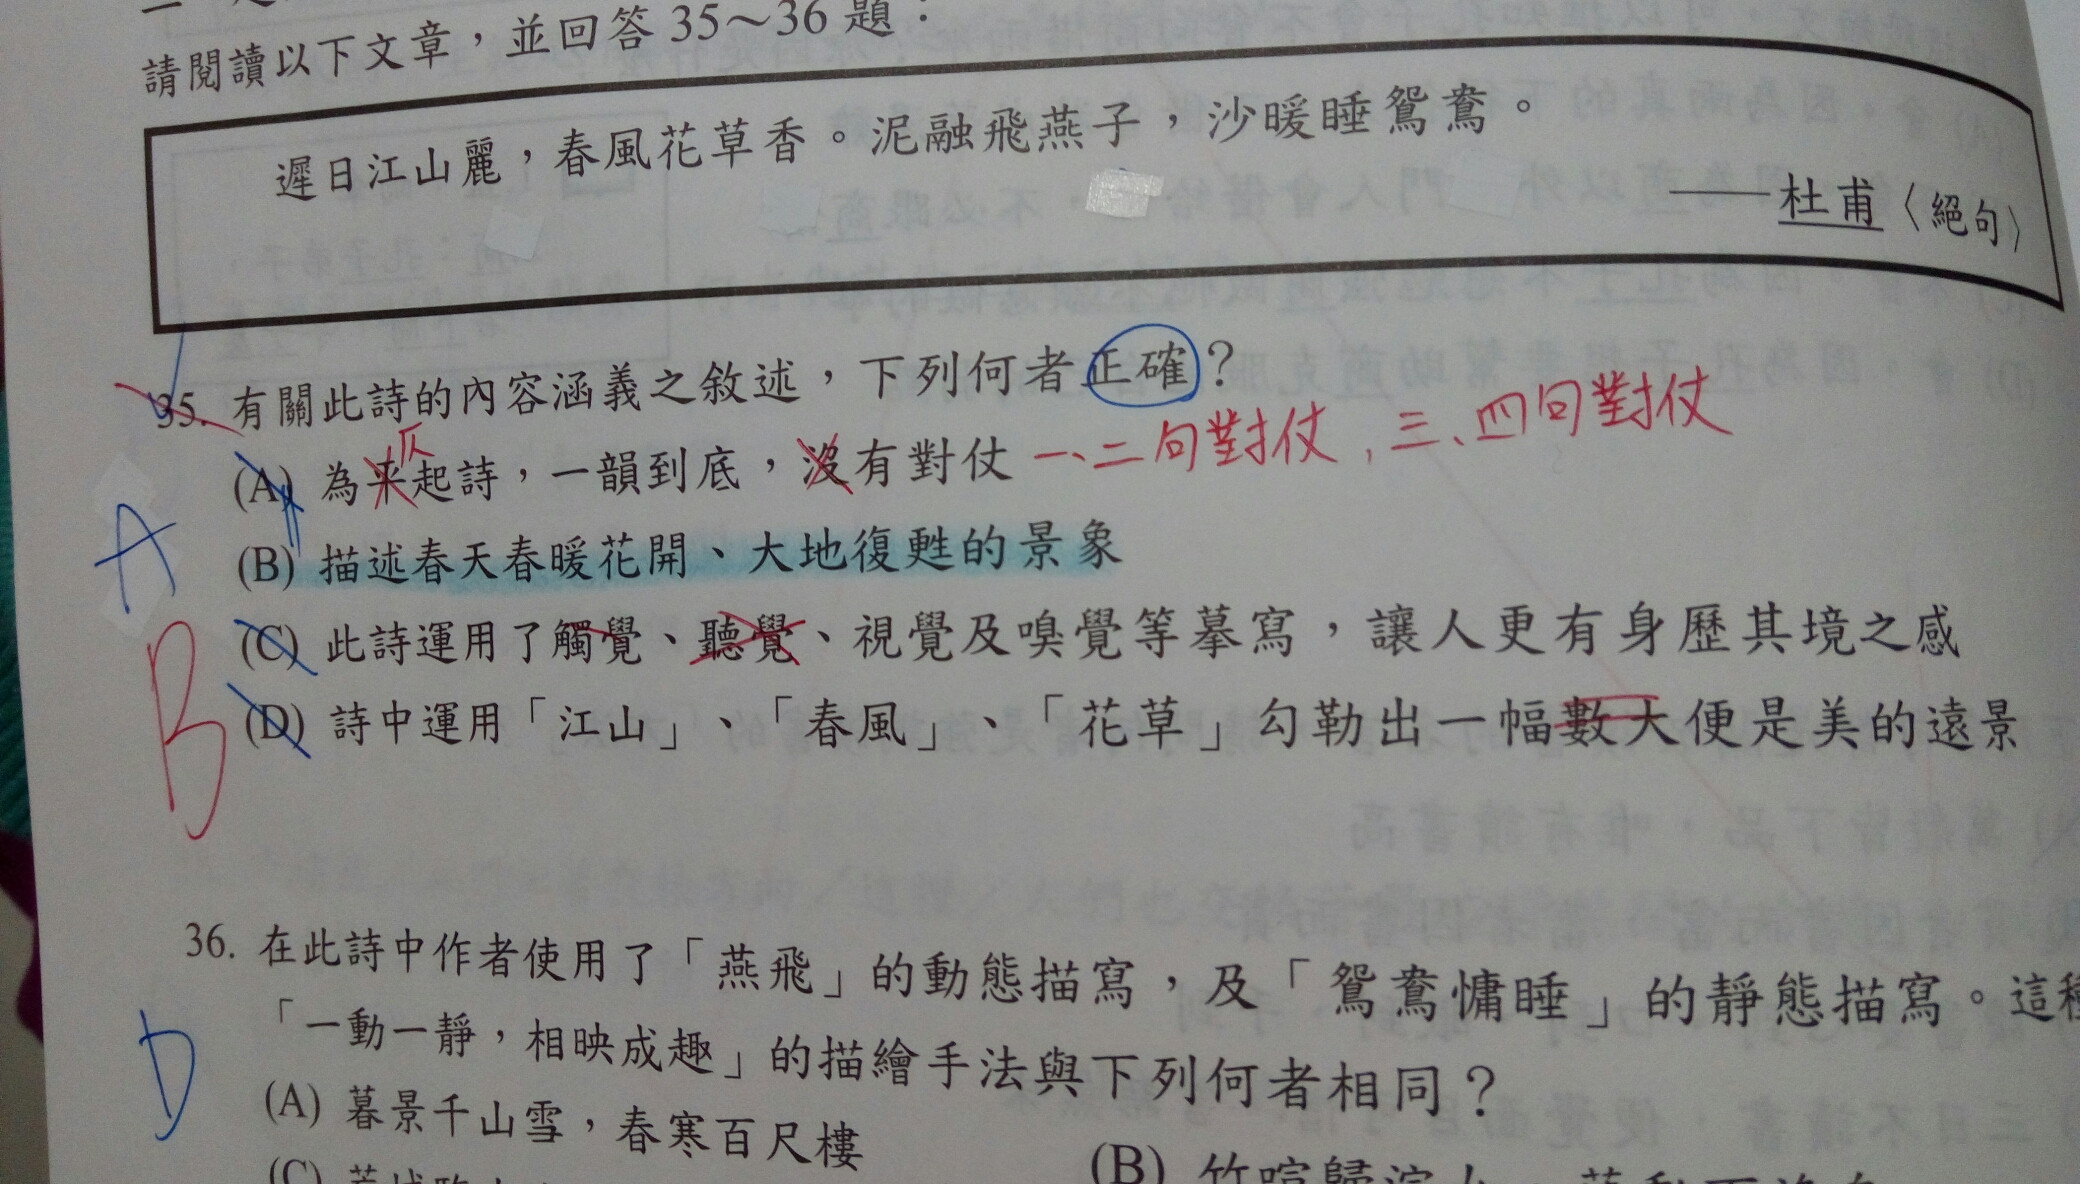 請閱讀以下文章，並回答35～36題：
遲日江山麗，春風花草香。泥融飛燕子，沙暖睡鴛鴦。
——杜甫〈絕句〉
35. 有關此詩的內容涵義之敘述，下列何者正確？
仄
(A) 為平起詩，一韻到底，沒有對仗 一、二句對仗，三、四句對仗
A
(B) 描述春天春暖花開、大地復甦的景象
(C) 此詩運用了觸覺、聽覺、視覺及嗅覺等摹寫，讓人更有身歷其境之感
B
(D) 詩中運用「江山」、「春風」、「花草」勾勒出一幅數大便是美的遠景
36. 在此詩中作者使用了「燕飛」的動態描寫，及「鴛鴦慵睡」的靜態描寫。這種
「一動一靜，相映成趣」的描繪手法與下列何者相同？
D
(A) 暮景千山雪，春寒百尺樓
(B) 竹喧歸浣女
(C)